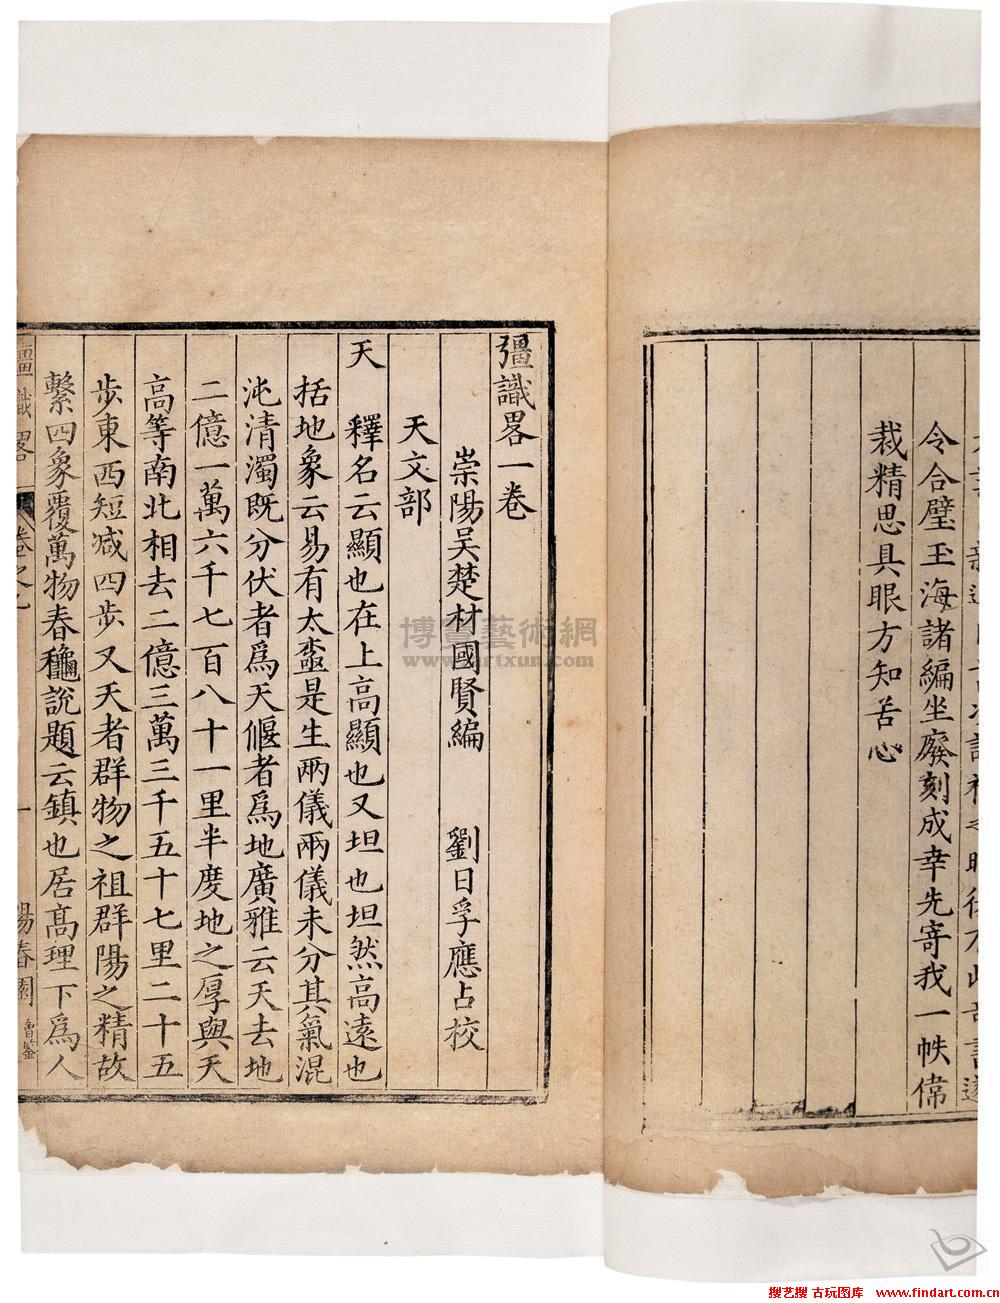 令合璧玉海諸編坐廢刻成幸先寄我一帙偉
裁精思具眼方知苦心
彊識畧一卷
崇陽吴楚材國賢編 劉日孚應占校
天文部
天 釋名云顯也在上高顯也又坦也坦然高遠也
括地象云易有太𡘋是生兩儀兩儀未分其氣混
沌清濁既分伏者爲天偃者爲地廣雅云天去地
二億一萬六千七百八十一里半度地之厚與天
高等南北相去二億三萬三千五十七里二十五
步東西短減四步又天者群物之祖群陽之精故
繫四象覆萬物春龝說題云鎮也居髙理下爲人
彊識畧 卷之一 一 陽春園
博寶藝術網
www.artxun.com
搜艺搜 古玩图库 www.findart.com.cn